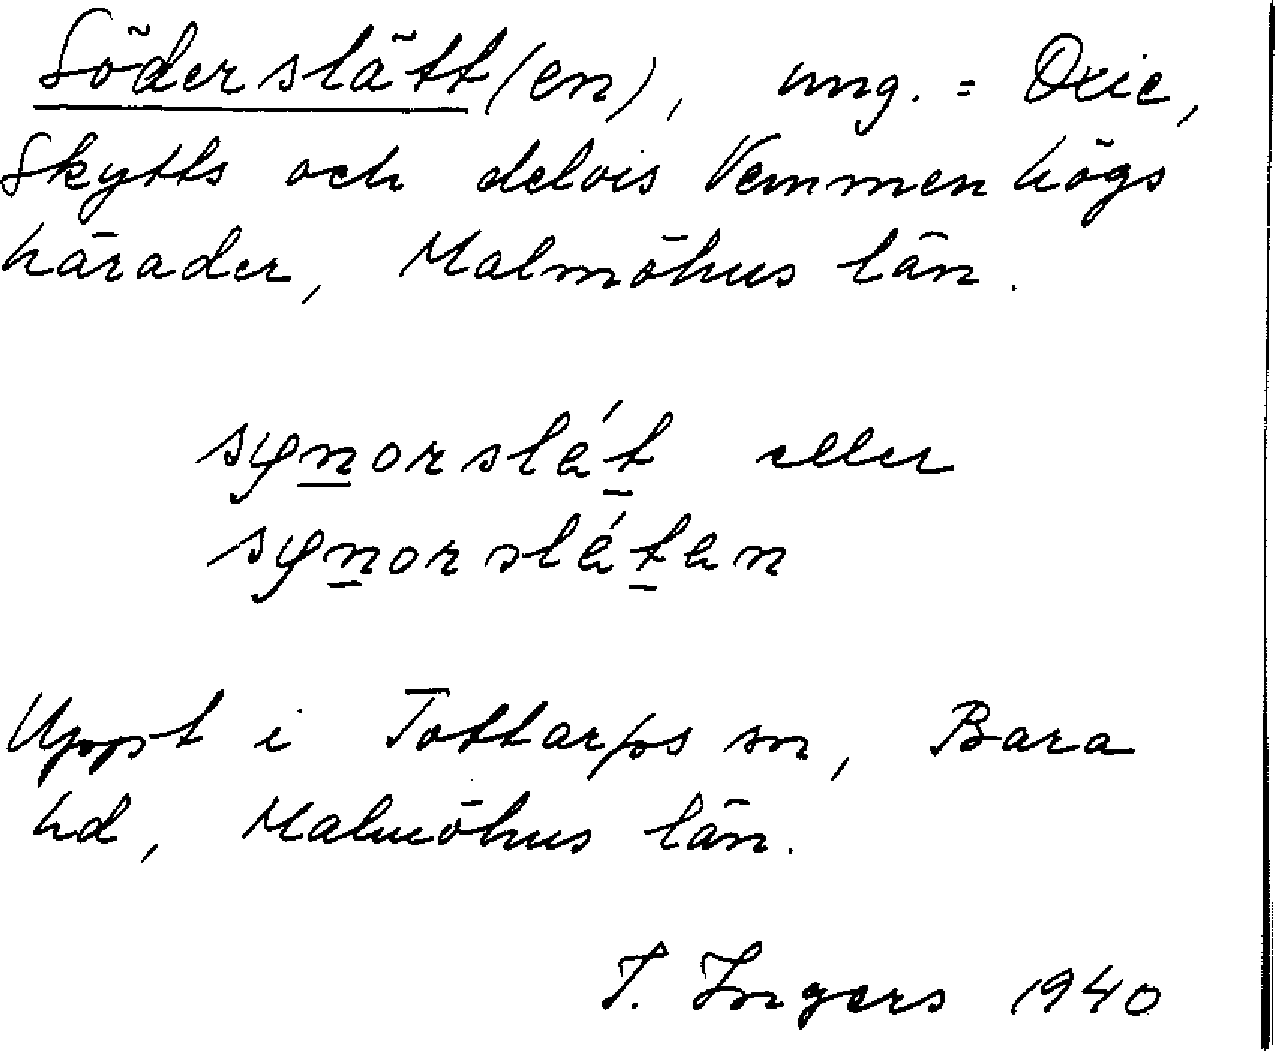 Söderslätt(en), ung. = Oxie,
Skytts och delvis Vemmenhögs
härader, Malmöhus län.
synorslát eller
synorslátan
Uppt i Tottarps sn, Bara
hd, Malmöhus län.
I. Ingers 1940